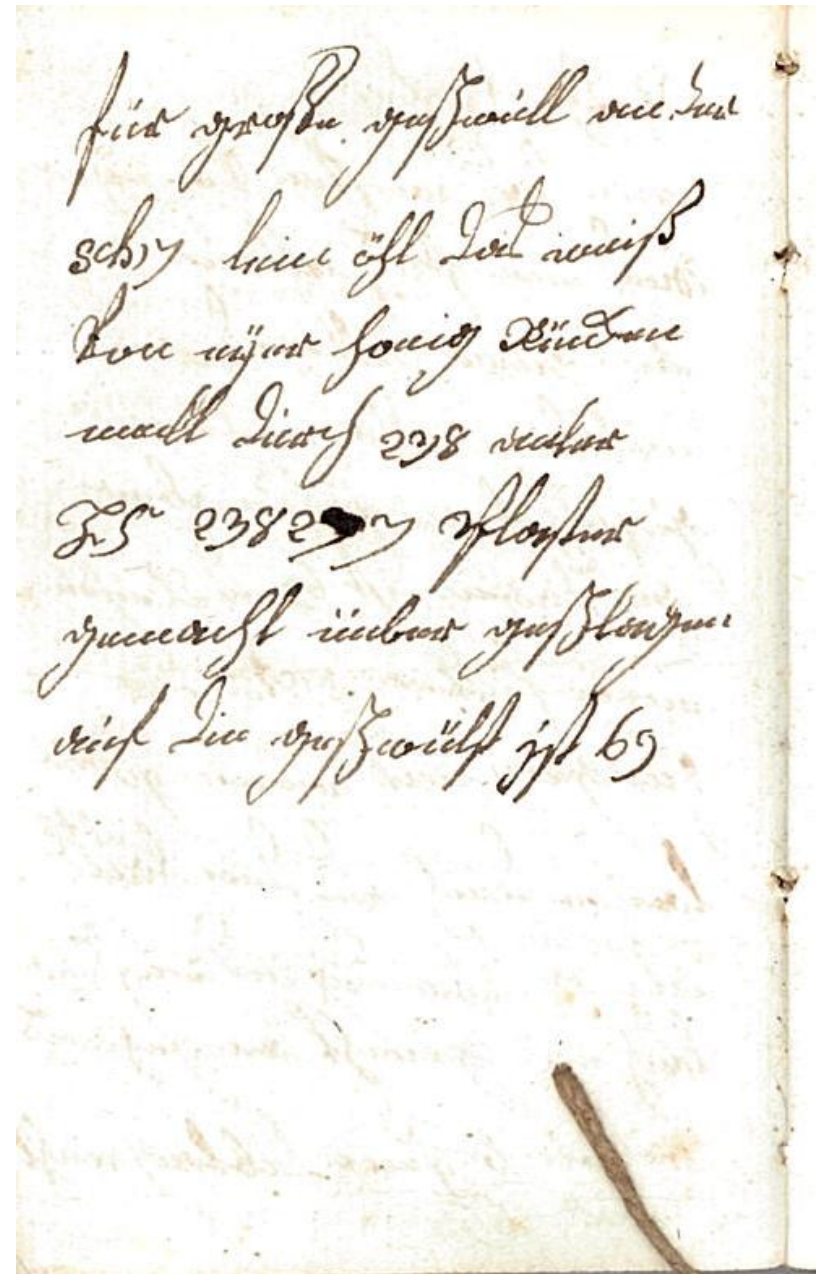 für große geschwill an der
sch)7 lein öhl das weiß
Von eÿer honig Rinden
mach durch 238 unter
238 Pflaster
gemacht über geschlagen
auf die geschwulst jst 69